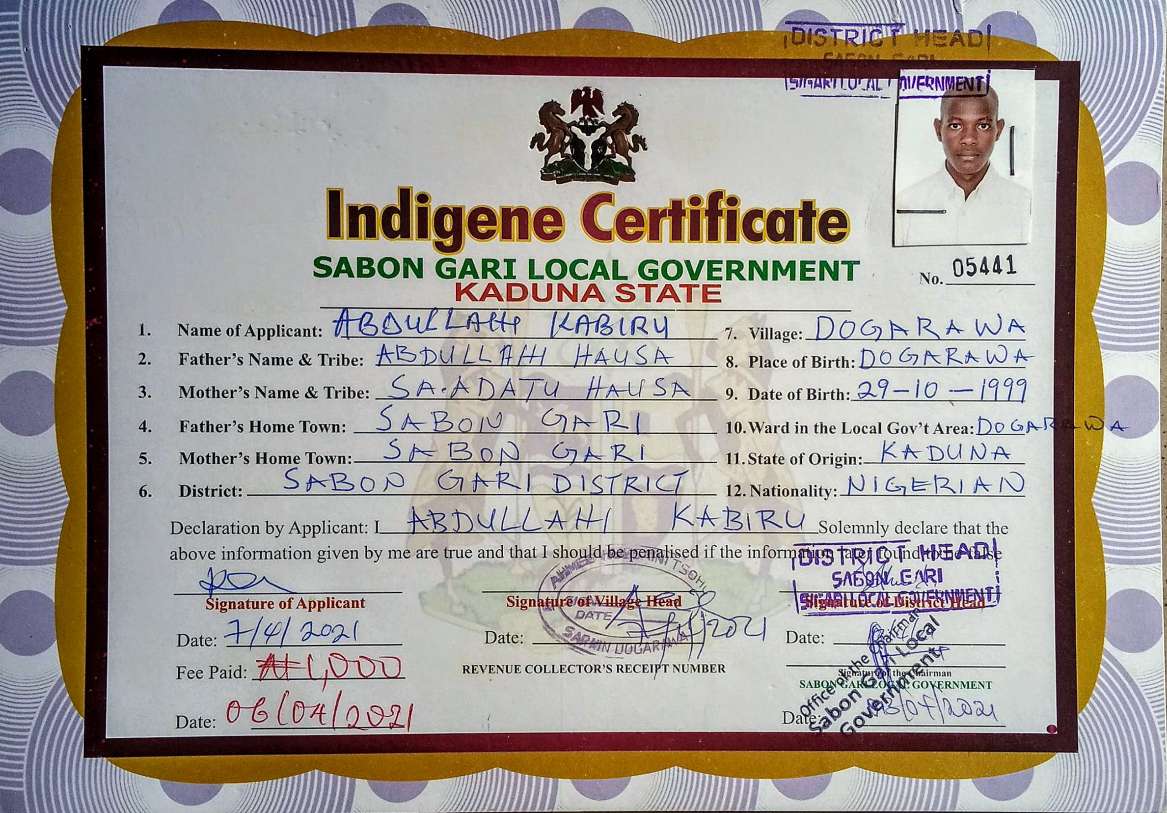 DISTRICT HEAD
SABON GARI
S/GARI LOCAL GOVERNMENT
Indigene Certificate
SABON GARI LOCAL GOVERNMENT
KADUNA STATE
No. 05441
1. Name of Applicant: ABDULLAHI KABIRU
2. Father's Name & Tribe: ABDULLAHI HAUSA
3. Mother's Name & Tribe: SA-ADATU HAUSA
4. Father's Home Town: SABON GARI
5. Mother's Home Town: SABON GARI
6. District: SABON GARI DISTRICT
7. Village: DOGARAWA
8. Place of Birth: DOGARAWA
9. Date of Birth: 29-10-1999
10. Ward in the Local Gov't Area: DOGARAWA
11. State of Origin: KADUNA
12. Nationality: NIGERIAN
Declaration by Applicant: I ABDULLAHI KABIRU Solemnly declare that the
above information given by me are true and that I should be penalised if the information later found to be false
Signature of Applicant
Date: 7/4/2021
Fee Paid: ₦1,000
Date: 06/04/2021
Signature of Village Head
DATE
SARKIN DOGARAWA
Date:
REVENUE COLLECTOR'S RECEIPT NUMBER
DISTRICT HEAD
SABON GARI
S/GARI LOCAL GOVERNMENT
Signature of District Head
Date:
Signature of the Chairman
SABON GARI LOCAL GOVERNMENT
Office of the Chairman
Sabon Gari Local
Government
Date: